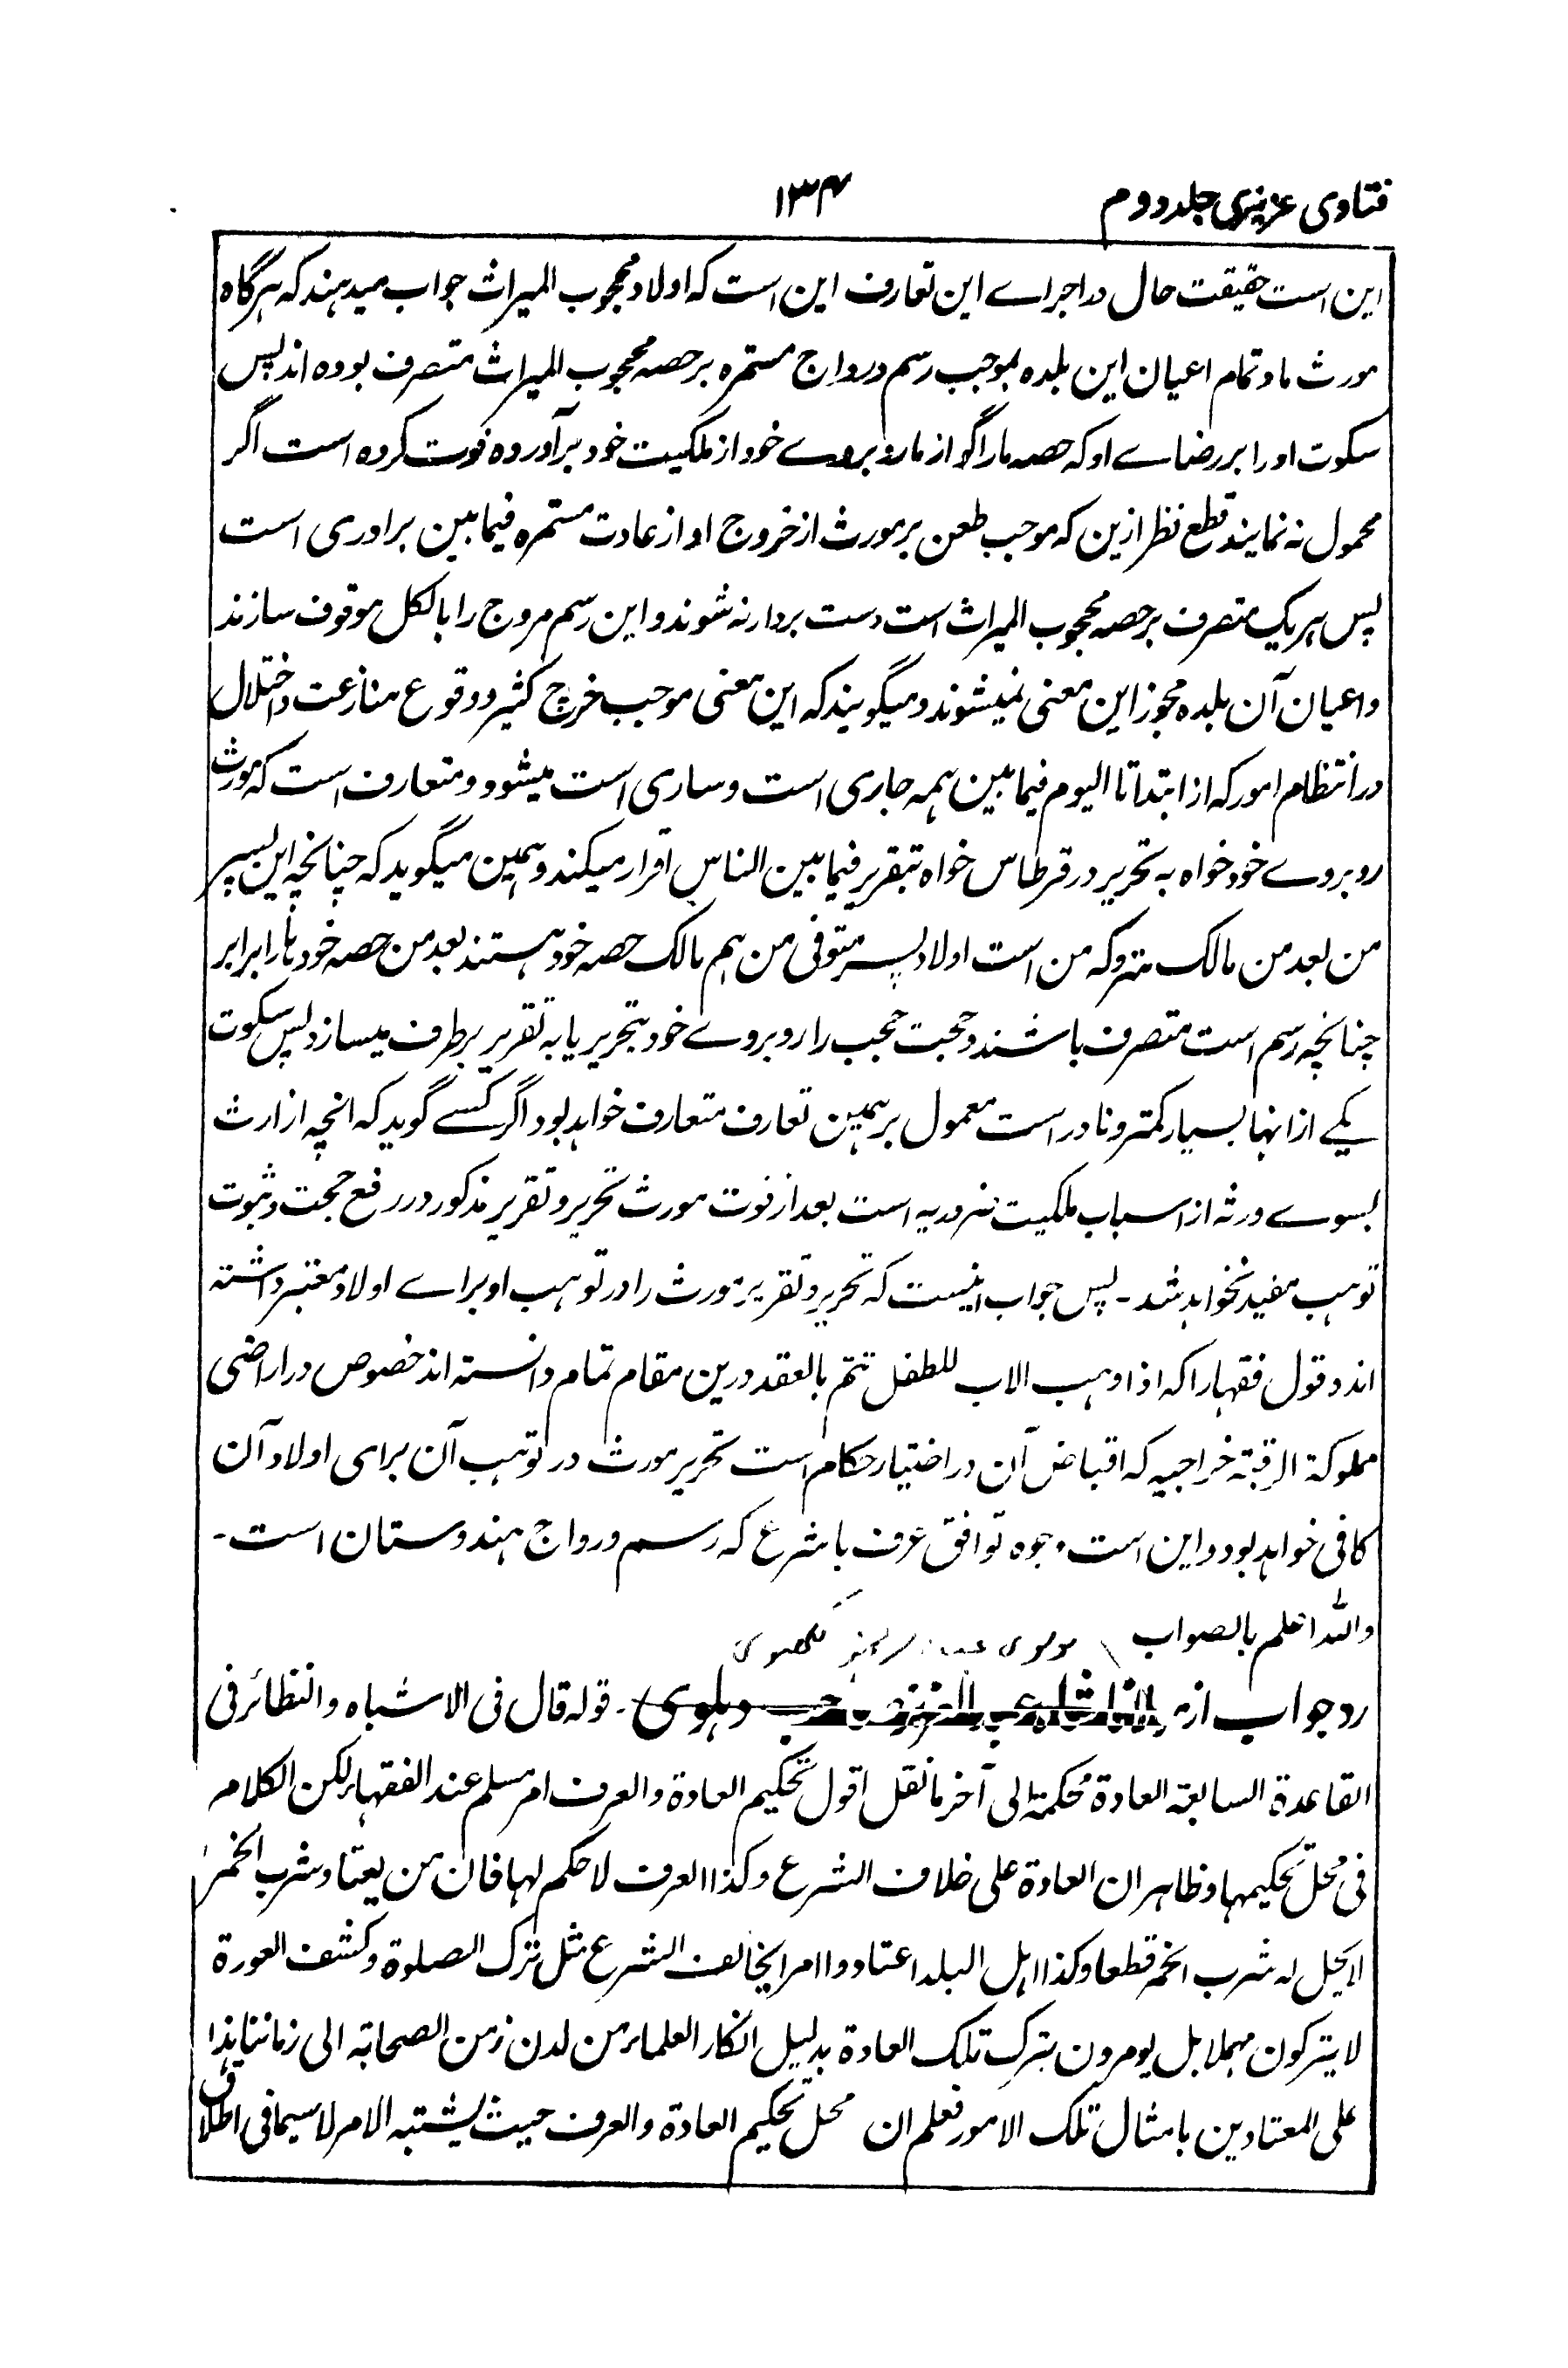 فتاوی عزیزی جلد دوم
۱۳۴
این است حقیقت حال و اجراے این تعارف این است که اولاد محجوب المیراث جواب میدہند که ہرگاہ
مورث ما و تمام اعیان این بلدہ بموجب رسم و رواج مستمرہ بر حصہ محجوب المیراث متصرف بودہ اند پس
سکوت او را بر رضاے او که حصہ ما را گو از ما روبروے خود از ملکیت خود برآوردہ فوت کردہ است اگر
محمول نہ نمایند قطع نظر ازین که موجب طعن بر مورث از خروج او از عادت مستمرہ فیما بین برادری است
پس ہر یک متصرف بر حصہ محجوب المیراث است دست بردار نہ شوند و این رسم مروج را بالکل موقوف سازند
و اعیان آن بلدہ مجوز این معنی نمیشوند و میگویند که این معنی موجب خرچ کثیر و وقوع منازعت و اختلال
در انتظام امور که از ابتدا تا الیوم فیما بین ہمہ جاری است و ساری است میشود و متعارف است که مورث
روبروے خود خواہ بہ تحریر در قرطاس خواہ بتقریر فیما بین الناس اقرار میکند و ہمین میگوید که چنانچہ این پسر
من بعد من مالک متروکہ من است اولاد پسر متوفی من ہم مالک حصہ خود ہستند بعد من حصہ خود ہا را برابر
چنانچہ رسم است متصرف باشند و حجت حجب را روبروے خود بتحریر یا بہ تقریر برطرف میسازد پس سکوت
یکے از انہا بسیار کمتر و نادر است معمول بر ہمین تعارف متعارف خواہد بود اگر کسے گوید که انچہ از ارث
بسوے ورثہ از اسباب ملکیت ضروریہ است بعد از فوت مورث تحریر و تقریر مذکور در رفع حجت و ثبوت
توہب مفید نخواہد شد ۔ پس جواب اینست که تحریر و تقریر مورث را در توہب او براے اولاد معتبر داشتہ
اند و قول فقہا را که اذا وہب الاب للطفل تتم بالعقد درین مقام تمام دانستہ اند خصوص در اراضی
مملوکة الرقبتہ خراجیہ که اقباض آن در اختیار حکام است تحریر مورث در توہب آن برای اولاد آن
کافی خواہد بود و این است وجوہ توافق عرف با شرع که رسم و رواج ہندوستان است ۔
واللہ اعلم بالصواب \ مولوی لکھنوی
رد جواب از دہلوی ۔ قولہ قال فی الاشباہ والنظائر فی
القاعدة السابعۃ العادة محکمۃ الی آخر ما نقل اقول تحکیم العادة والعرف امر مسلم عند الفقہاء لکن الکلام
فی محل تحکیمہا و ظاہر ان العادة علی خلاف الشرع و کذا العرف لا حکم لہا فان من یعتاد شرب الخمر
لا یحل لہ شرب الخمر قطعا و کذا اہل البلد اعتادوا امرا یخالف الشرع مثل ترک الصلوة و کشف العورة
لا یترکون مہملا بل یومرون بترک تلک العادة بدلیل انکار العلماء من لدن زمن الصحابۃ الی زماننا ہذا
علی المعتادین بامثال تلک الامور فعلم ان محل تحکیم العادة والعرف حیث یشتبہ الامر لا سیما فی اطلاق